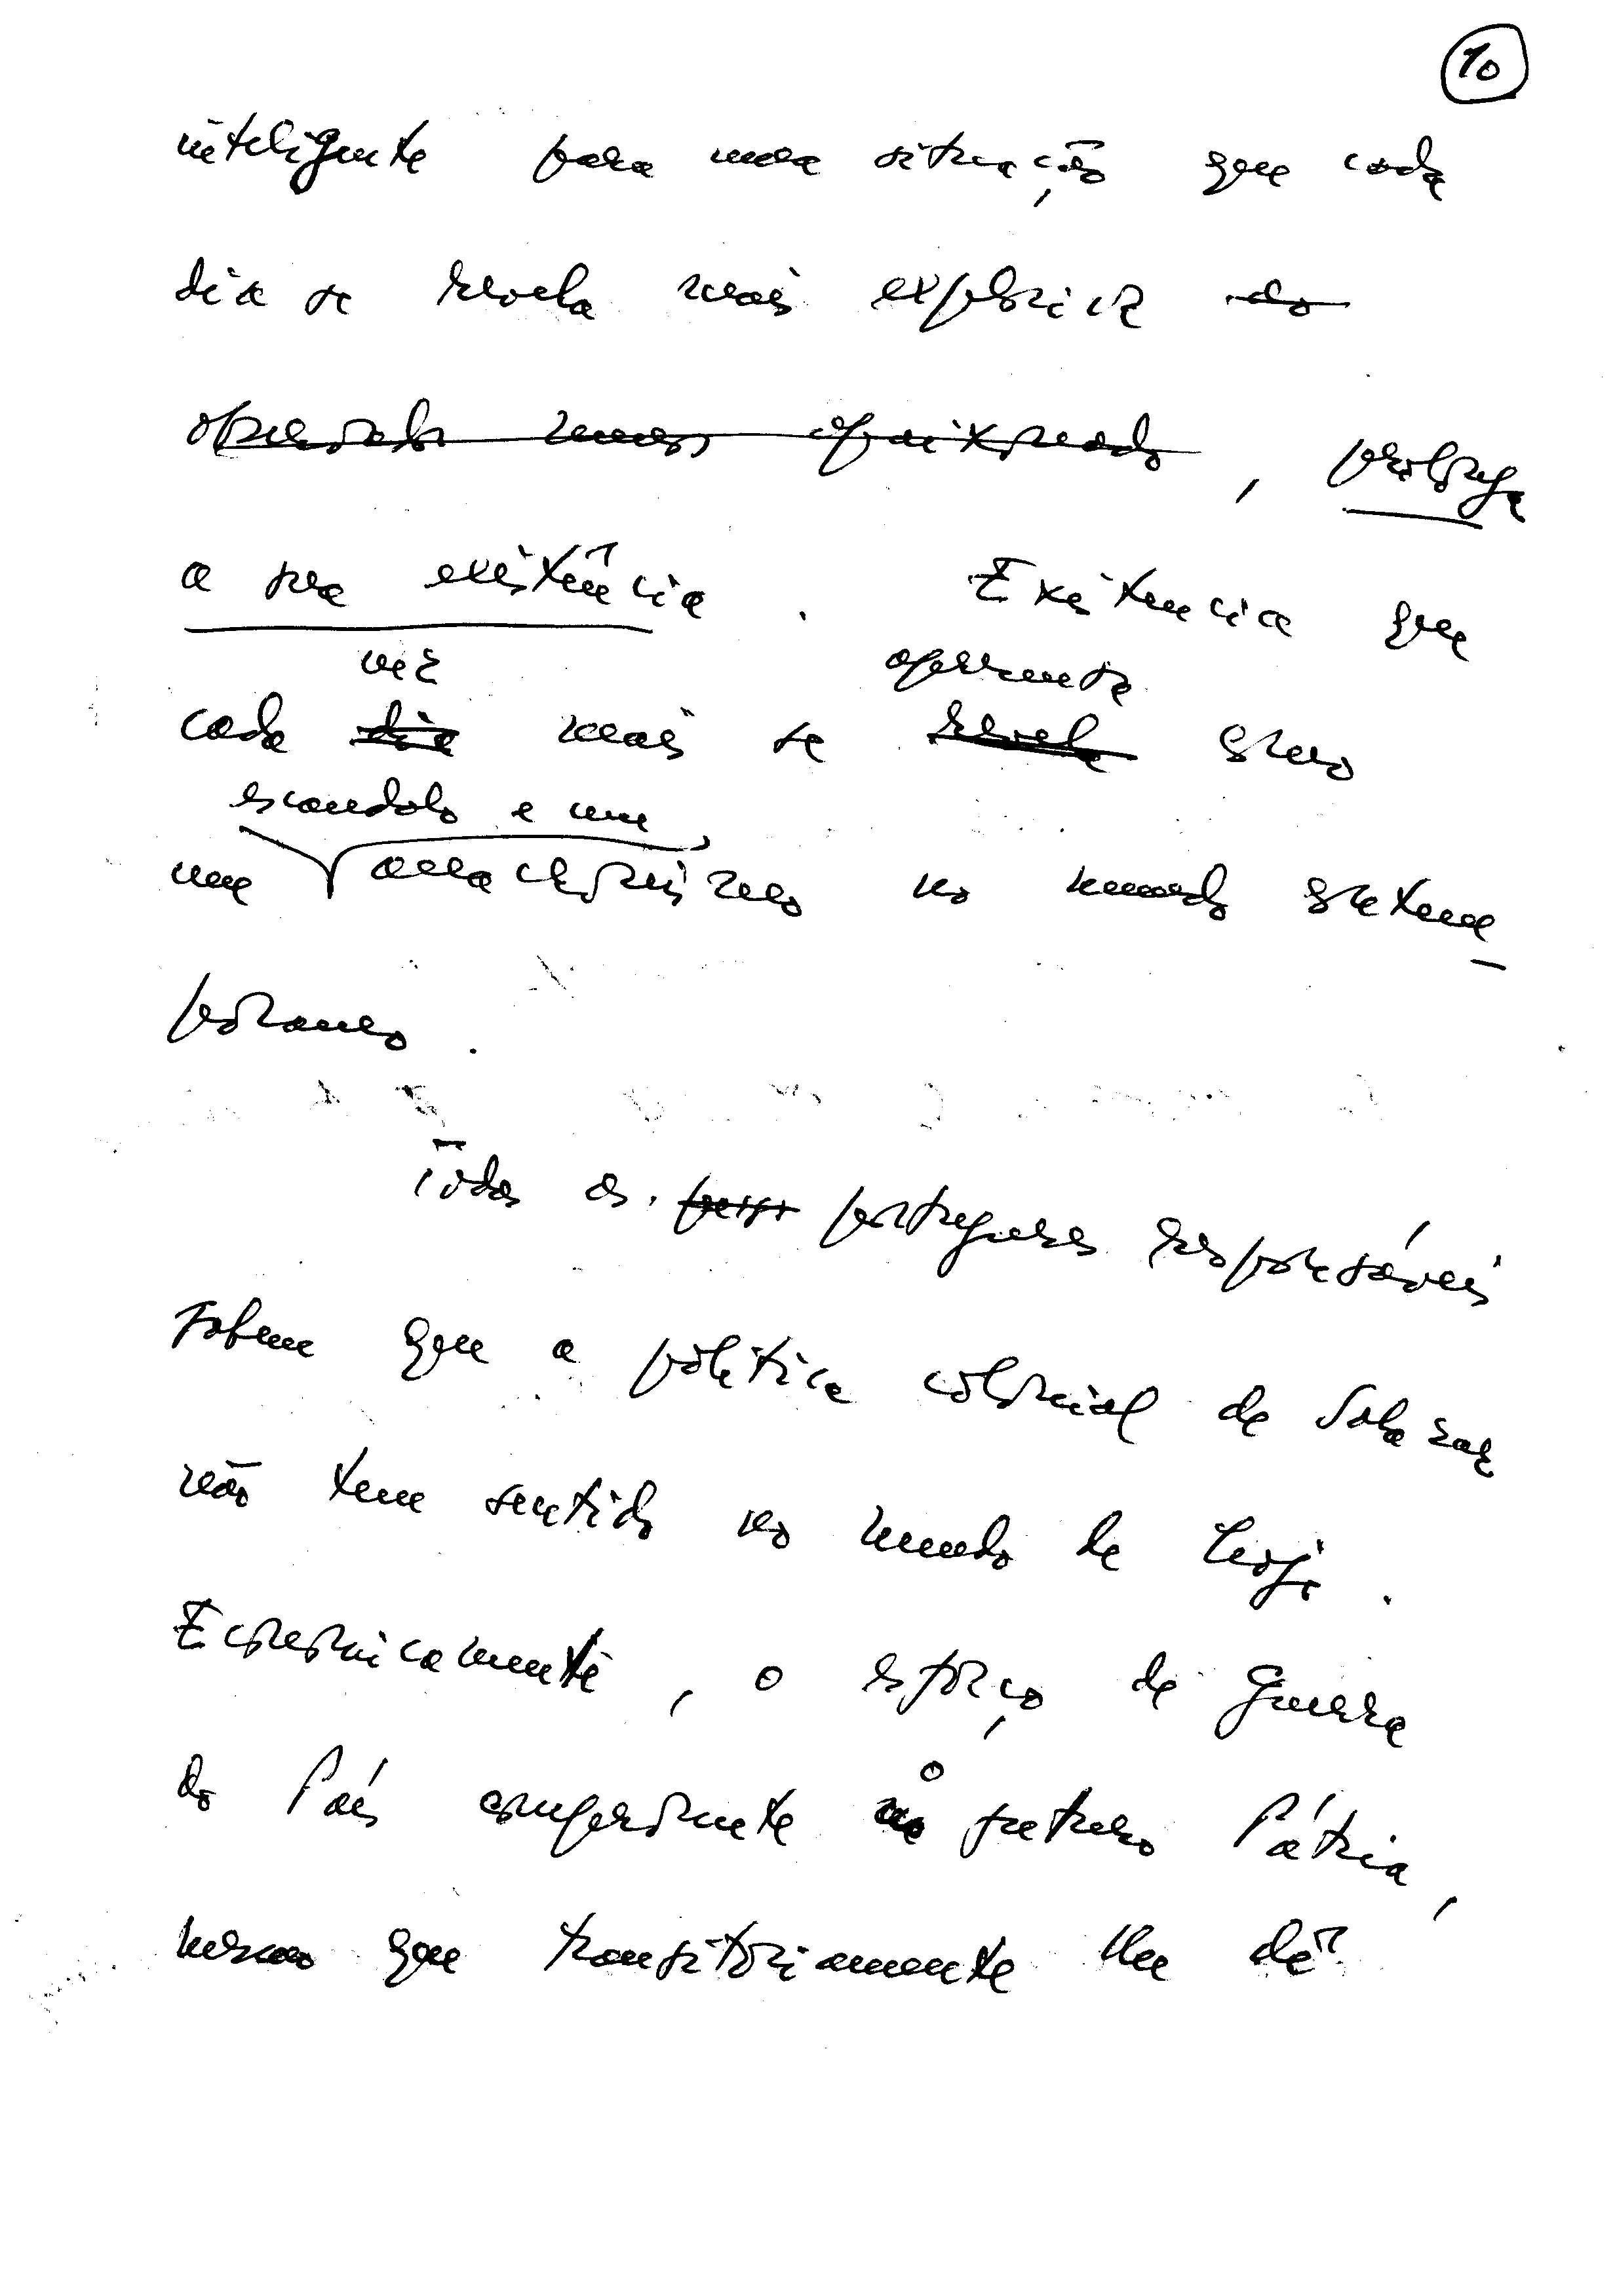 10
inteligente para uma situação que cada
dia se revela mais explosiva ao
observador menos apaixonado, prolonga
a sua existência. Existencia que
vez apresenta
cada dia mais se revela como
escandalo e um
um anachronismo no mundo contem-
poraneo.
Todos os portugueses responsáveis
sabem que a politica colonial de Salazar
não tem sentido no mundo de hoje.
Economicamente, o esforço de guerra
do País compromete o futuro Pátria,
mesmo que transitoriamente lhe dê